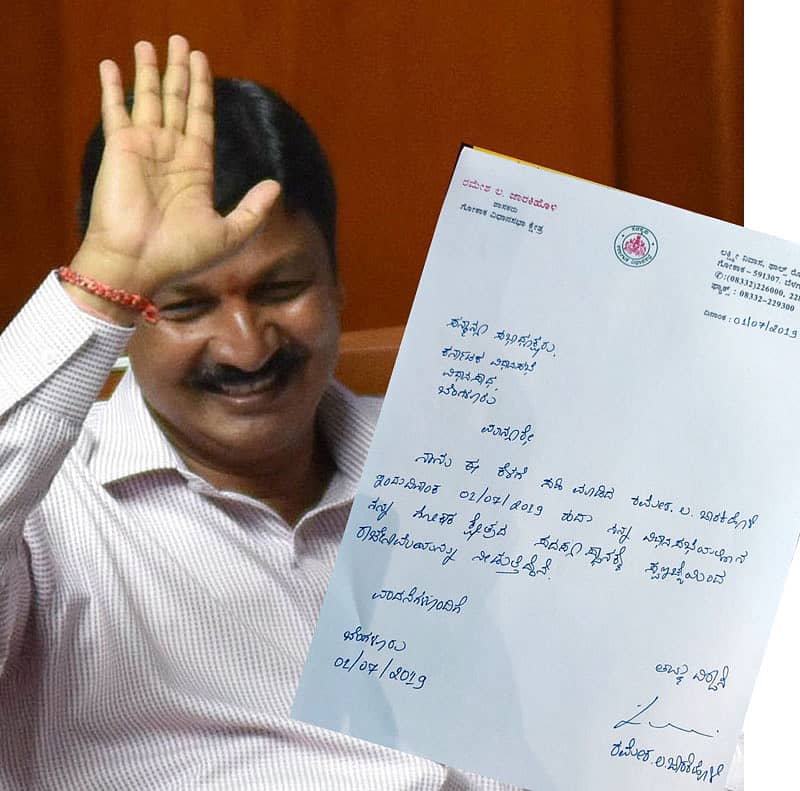 ರಮೇಶ ಲ. ಜಾರಕಿಹೊಳಿ
ಶಾಸಕರು
ಗೋಕಾಕ ವಿಧಾನಸಭಾ ಕ್ಷೇತ್ರ
ಲಕ್ಷ್ಮೀ ನಿವಾಸ, ಫಾಲ್ಸ್
ಗೋಕಾಕ - 591307.
✆:(08332)226000,
ಫ್ಯಾಕ್ಸ್ : 08332-229300
ದಿನಾಂಕ : 01/07/2019
ಸನ್ಮಾನ್ಯ ಸಭಾಧ್ಯಕ್ಷರು,
ಕರ್ನಾಟಕ ವಿಧಾನಸಭೆ
ವಿಧಾನಸೌಧ,
ಬೆಂಗಳೂರು
ಮಾನ್ಯರೇ,
ನಾನು ಈ ಕೆಳಗೆ ಸಹಿ ಮಾಡಿದ ರಮೇಶ. ಲ. ಜಾರಕಿಹೊಳಿ
ಇಂದು ದಿನಾಂಕ 01/07/2019 ರಂದು ನನ್ನ
ನನ್ನ ಗೋಕಾಕ ಕ್ಷೇತ್ರದ ಸದಸ್ಯ ಸ್ಥಾನಕ್ಕೆ ಸ್ವಇಚ್ಛೆಯಿಂದ
ರಾಜೀನಾಮೆಯನ್ನು ನೀಡುತ್ತಿದ್ದೇನೆ.
ವಂದನೆಗಳೊಂದಿಗೆ
ಬೆಂಗಳೂರು
01/07/2019
ತಮ್ಮ ವಿಶ್ವಾಸಿ
ರಮೇಶ ಲ ಜಾರಕಿಹೊಳಿ